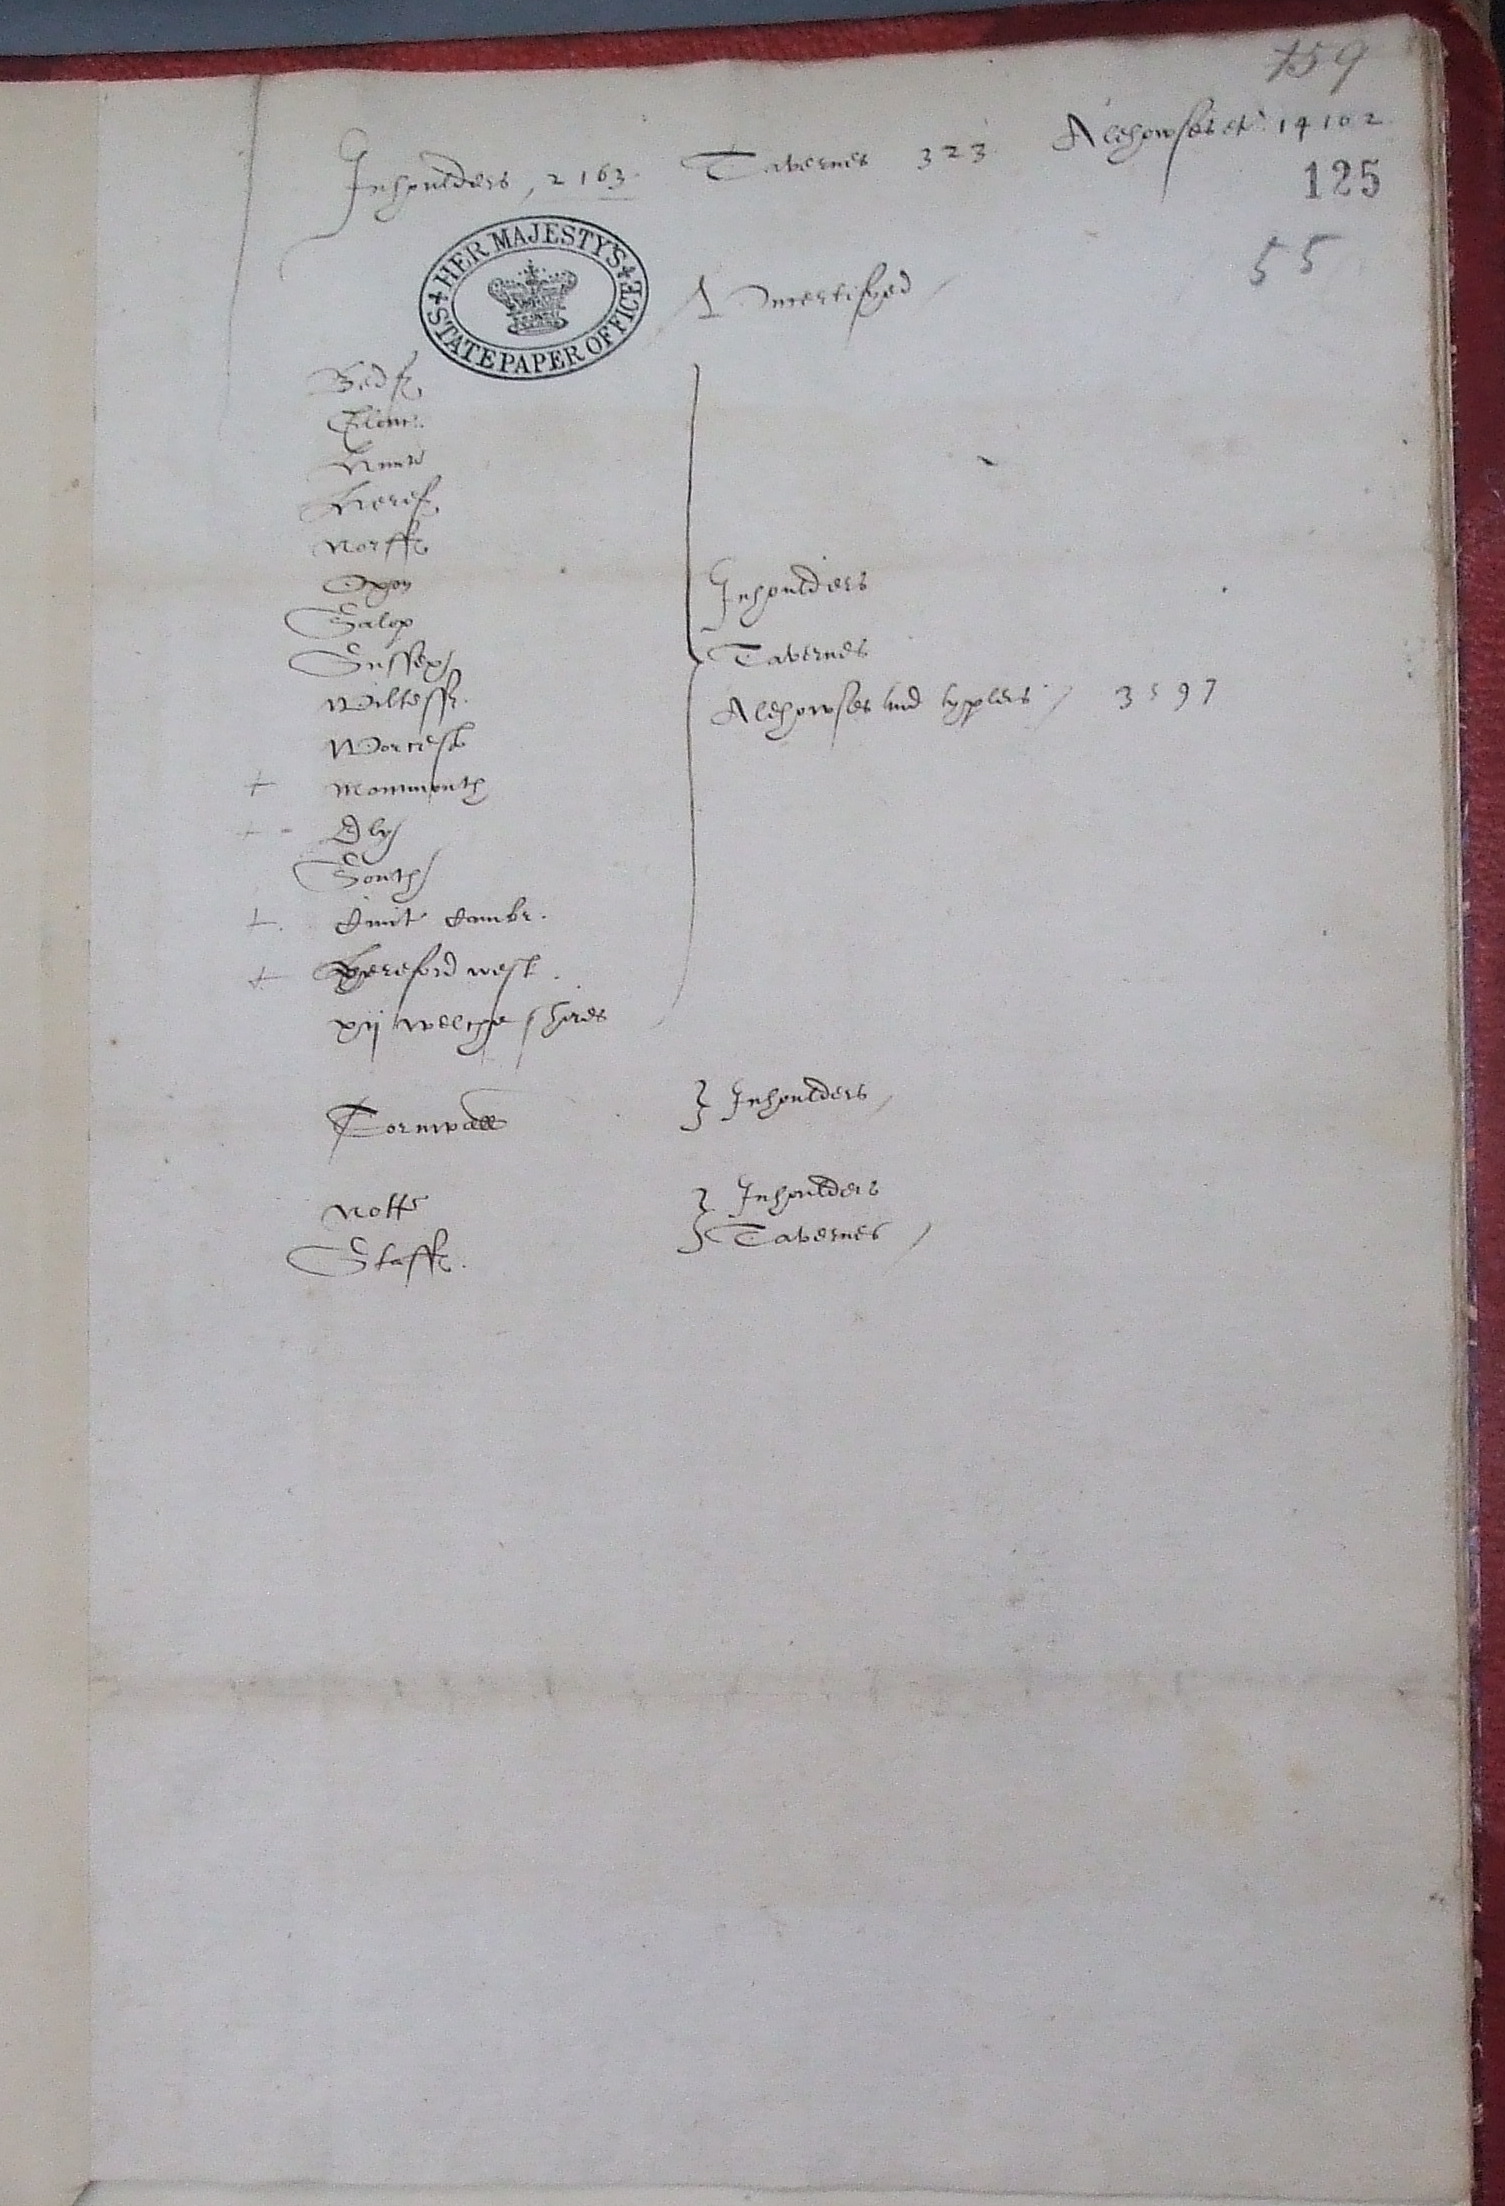 159
Inhoulders, 2163. Tavernes 323 Alehowses etc 14102
125
55
HER MAJESTY'S STATE PAPER OFFICE
Uncertifyed
Bedf
Glouc.
Hunt
Heref
Norff
Oxon
Salop
Sussex
Wiltess.
Worcest
+ Monmouth
+ - Ely
South
+ Civit Cambr.
+ Hereford west.
xij Welche Shires
Inhoulders
Tavernes
Alehowses and typlers / 3597
Cornwall } Inhoulders /
Nott } Inhoulders
Staff. } Tavernes /